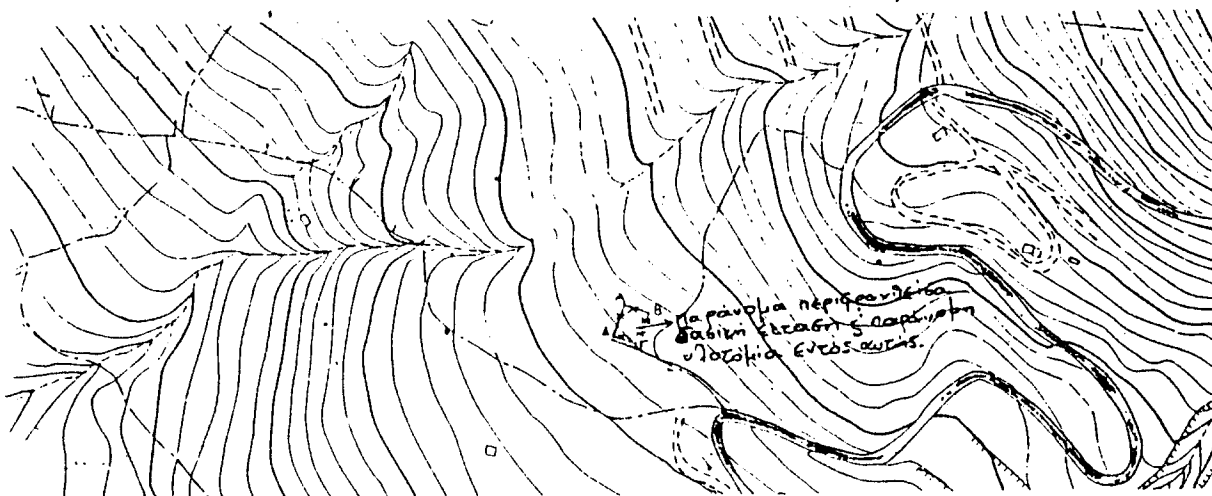 Α
Β
Δ
Γ
Παράνομα περιφραχθείσα
δασική έκταση & παράνομη
υλοτόμια εντός αυτής.